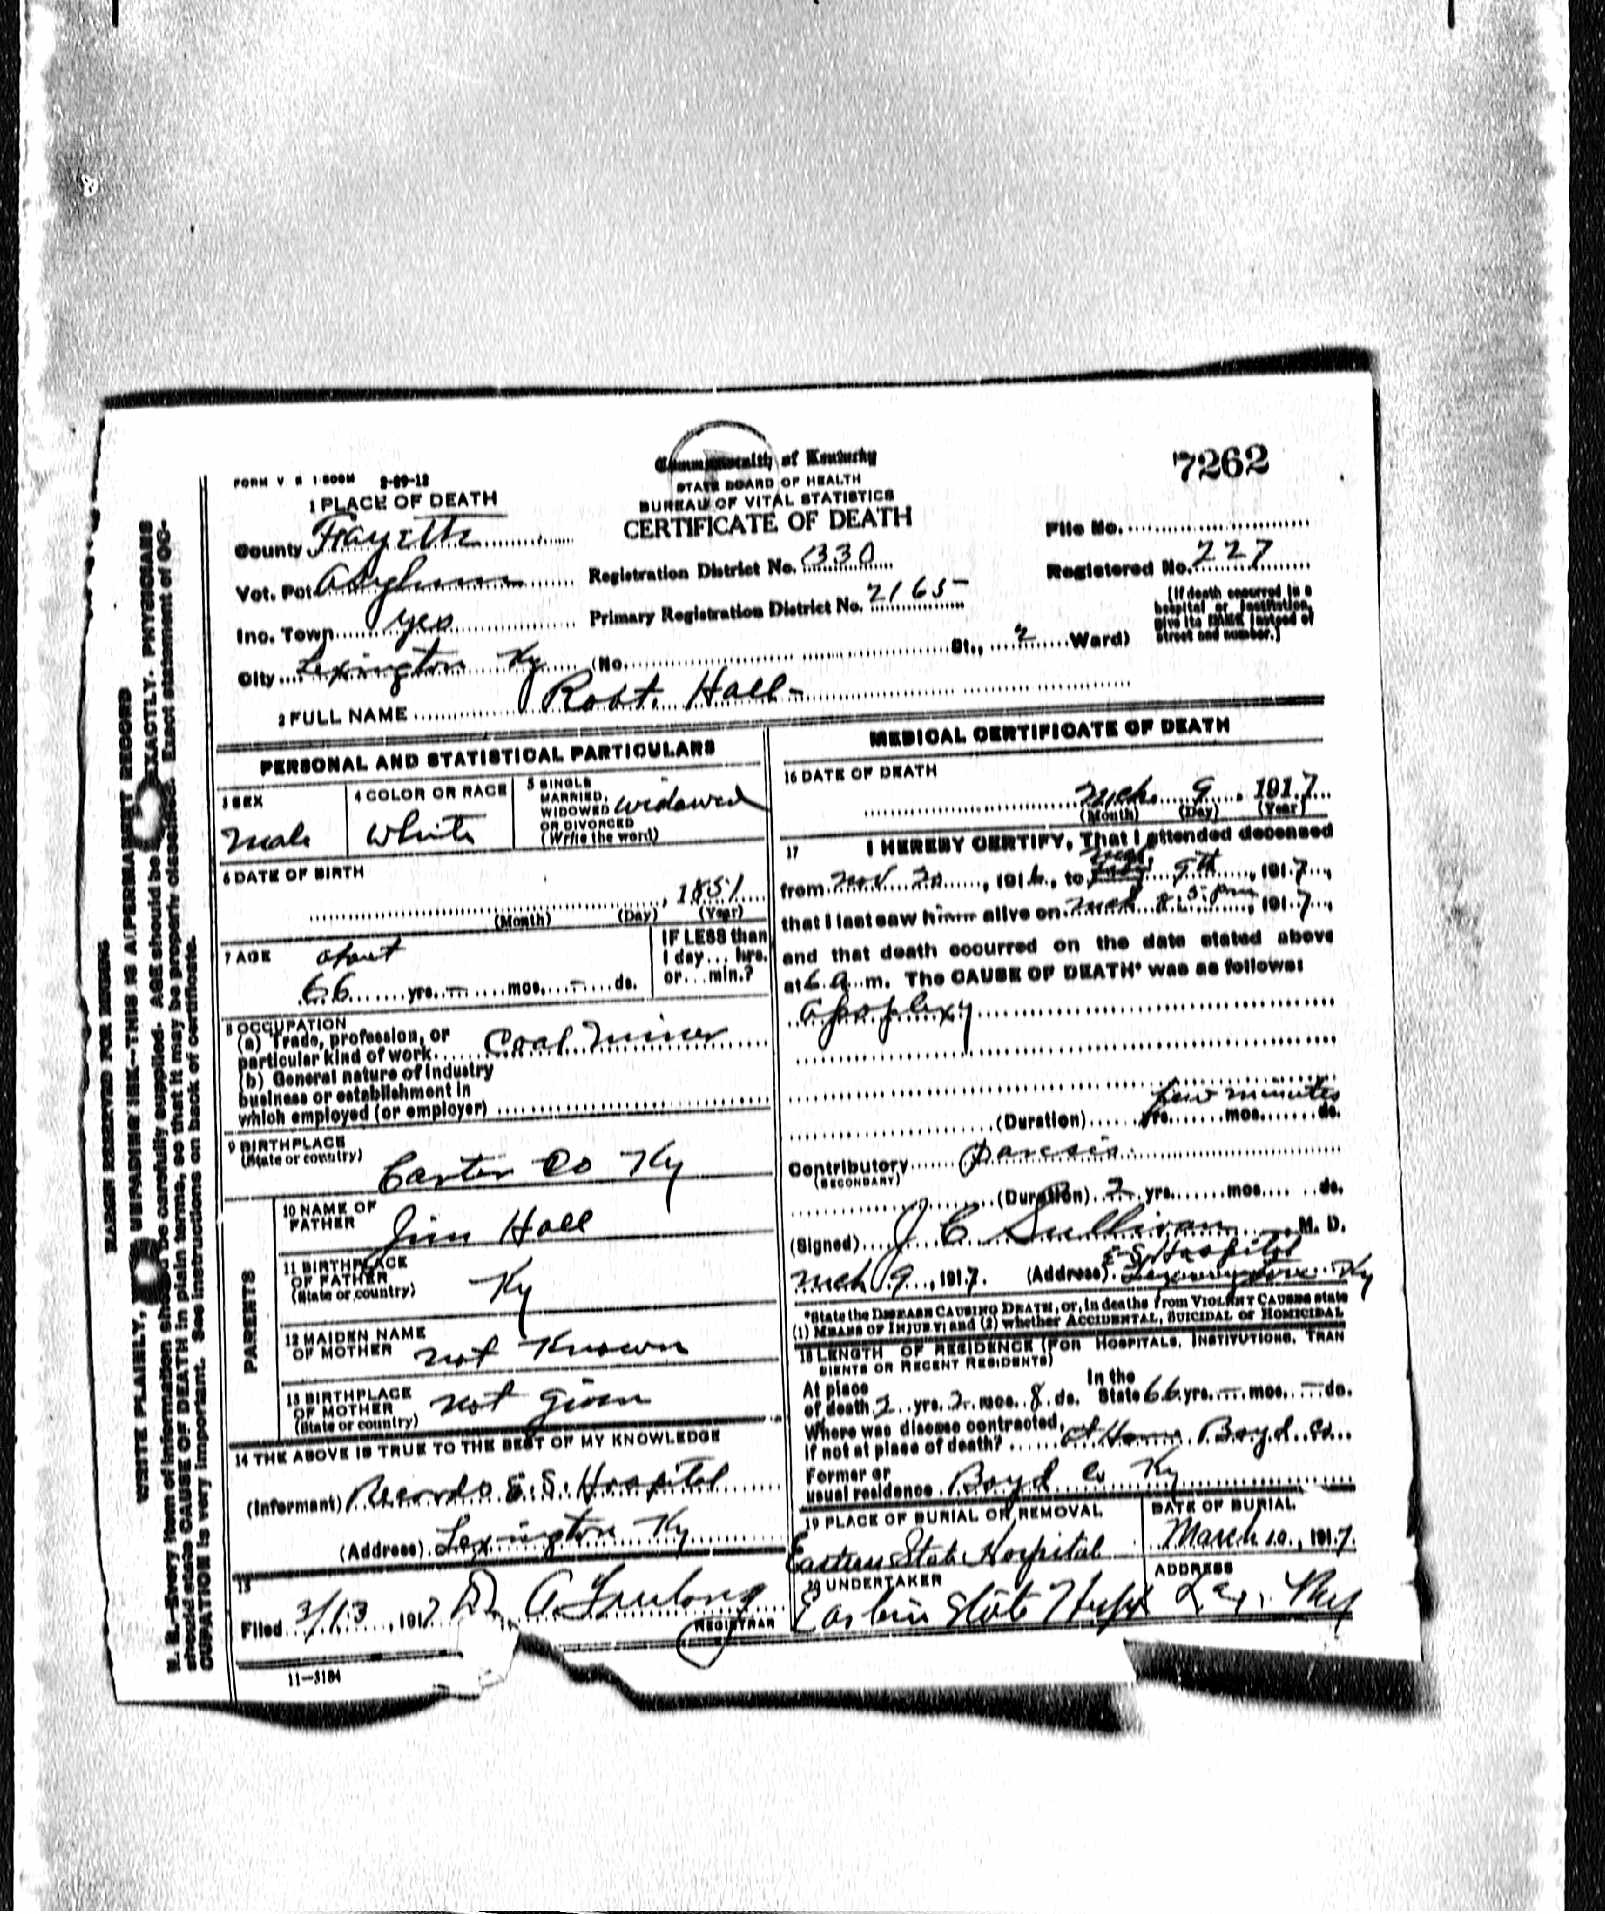 7262
FORM V S 1-500M 3-29-12
Commonwealth of Kentucky
STATE BOARD OF HEALTH
BUREAU OF VITAL STATISTICS
CERTIFICATE OF DEATH
1 PLACE OF DEATH
County Fayette
Vot. Pct Asylum
Inc. Town yes
City Lexington Ky (No. St., 2 Ward)
Registration District No. 330
Primary Registration District No. 2165
File No.
Registered No. 227
(If death occurred in a
hospital or institution,
give its NAME instead of
street and number.)
2 FULL NAME Robt. Hall
PERSONAL AND STATISTICAL PARTICULARS
3 SEX
Male
4 COLOR OR RACE
White
5 SINGLE
MARRIED,
WIDOWED
OR DIVORCED
(Write the word)
widowed
6 DATE OF BIRTH
, 1851
(Month) (Day) (Year)
7 AGE about
66 yrs. – mos. – ds.
IF LESS than
1 day... hrs.
or... min.?
8 OCCUPATION
(a) Trade, profession, or
particular kind of work Coal Miner
(b) General nature of industry
business or establishment in
which employed (or employer)
9 BIRTHPLACE
(State or country)
Carter Co Ky
PARENTS
10 NAME OF
FATHER
Jim Hall
11 BIRTHPLACE
OF FATHER
(State or country)
Ky
12 MAIDEN NAME
OF MOTHER not Known
13 BIRTHPLACE
OF MOTHER
(State or country)
not given
14 THE ABOVE IS TRUE TO THE BEST OF MY KNOWLEDGE
(Informant) Records E. S. Hospital
(Address) Lexington Ky
15
Filed 3/13, 1917
REGISTRAR
11—3184
MEDICAL CERTIFICATE OF DEATH
16 DATE OF DEATH
Mch. 9, 1917
(Month) (Day) (Year)
17 I HEREBY CERTIFY, That I attended deceased
from Nov 20, 1916, to Mch. 9th, 1917,
that I last saw him alive on Mch 8, 5 pm, 1917,
and that death occurred on the date stated above
at 6 a m. The CAUSE OF DEATH* was as follows:
Apoplexy
(Duration) yrs. mos. ds.
few minutes
Contributory Paresis
(SECONDARY)
(Duration) 2 yrs. mos. ds.
(Signed) J C Sullivan, M. D.
E S Hospital
Mch 9, 1917. (Address) Lexington Ky
*State the DISEASE CAUSING DEATH, or, in deaths from VIOLENT CAUSES state
(1) MEANS OF INJURY; and (2) whether ACCIDENTAL, SUICIDAL or HOMICIDAL
18 LENGTH OF RESIDENCE (FOR HOSPITALS, INSTITUTIONS, TRAN
SIENTS OR RECENT RESIDENTS)
At place
of death 2 yrs. 2 mos. 8 ds.
In the
State 66 yrs. – mos. – ds.
Where was disease contracted,
if not at place of death? at Home Boyd Co
Former or
usual residence Boyd Co Ky
19 PLACE OF BURIAL OR REMOVAL
Eastern State Hospital
DATE OF BURIAL
March 10, 1917.
20 UNDERTAKER
Eastern State Hosp
ADDRESS
Lex. Ky
MARGIN RESERVED FOR BINDING
WRITE PLAINLY, UNFADING INK—THIS IS A PERMANENT RECORD
N. B.—Every item of information should be carefully supplied. AGE should be EXACTLY. PHYSICIANS
should state CAUSE OF DEATH in plain terms, so that it may be properly classified. Exact statement of OC-
CUPATION is very important. See instructions on back of certificate.